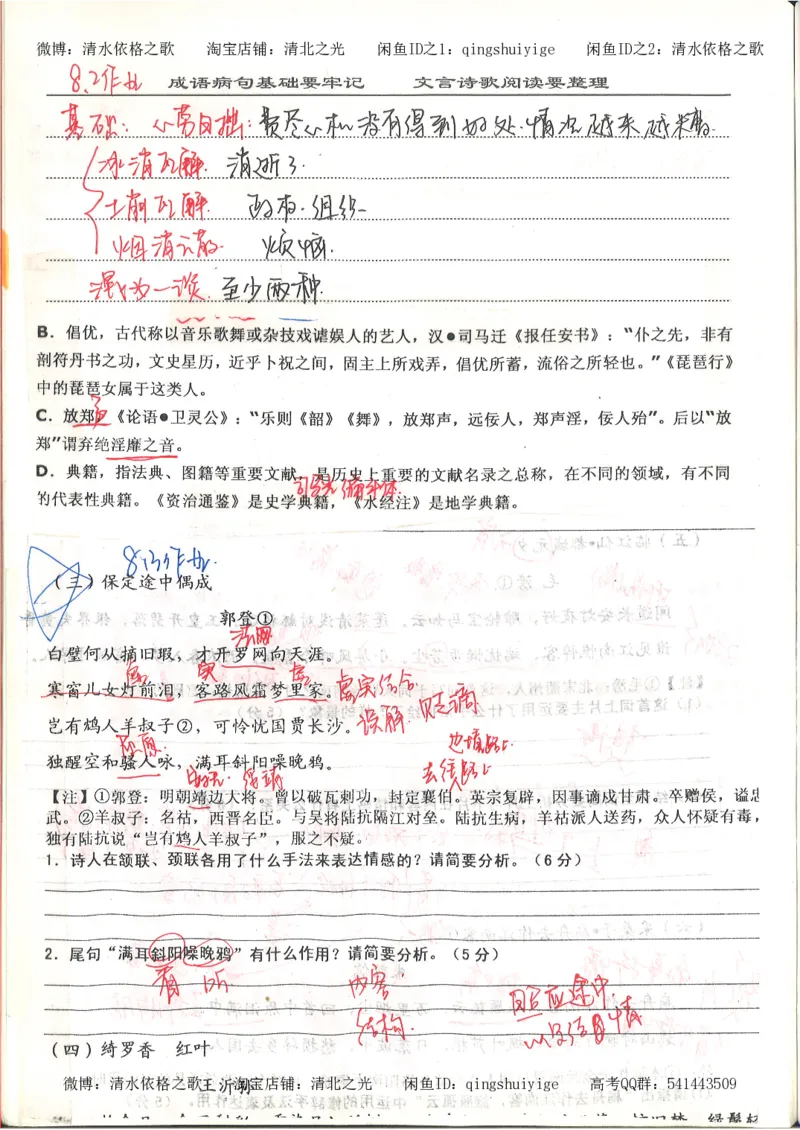 微博：清水依格之歌 淘宝店铺：清北之光 闲鱼ID之1：qingshuiyige 闲鱼ID之2：清水依格之歌
8.2作业 成语病句基础要牢记 文言诗歌阅读要整理
基础：心劳日拙：费尽心机没有得到好处.情况越来越糟.
冰消瓦解. 消逝了.
土崩瓦解. 政权.组织
烟消云散. 烦恼.
混为一谈. 至少两种.
B．倡优，古代称以音乐歌舞或杂技戏谑娱人的艺人，汉●司马迁《报任安书》：“仆之先，非有
剖符丹书之功，文史星历，近乎卜祝之间，固主上所戏弄，倡优所蓄，流俗之所轻也。”《琵琶行》
中的琵琶女属于这类人。
C．放郑，《论语●卫灵公》：“乐则《韶》《舞》，放郑声，远佞人，郑声淫，佞人殆”。后以“放
郑”谓弃绝淫靡之音。
D．典籍，指法典、图籍等重要文献，是历史上重要的文献名录之总称，在不同的领域，有不同
的代表性典籍。《资治通鉴》是史学典籍，《水经注》是地学典籍。
司马光 编年体.
8.3作业
（三）保定途中偶成
郭登①
法网
白璧何从摘旧瑕，才开罗网向天涯。
虚 实 虚
寒窗儿女灯前泪，客路风霜梦里家。虚实结合
岂有鸩人羊叔子②，可怜忧国贾长沙。误解 贬谪
屈原. 也填路上.
独醒空和骚人咏，满耳斜阳噪晚鸦。
去绩路上
【注】①郭登：明朝靖边大将。曾以破瓦剌功，封定襄伯。英宗复辟，因事谪戍甘肃。卒赠侯，谥忠
武。②羊叔子：名祜，西晋名臣。与吴将陆抗隔江对垒。陆抗生病，羊祜派人送药，众人怀疑有毒，
独有陆抗说“岂有鸩人羊叔子”，服之不疑。
1．诗人在颔联、颈联各用了什么手法来表达情感的？请简要分析。（6分）
2．尾句“满耳斜阳噪晚鸦”有什么作用？请简要分析。（5分）
看 听 内容
结构. 回应途中
以景结情
（四）绮罗香 红叶
微博：清水依格之歌王沂孙淘宝店铺：清北之光 闲鱼ID：qingshuiyige 高考QQ群：541443509